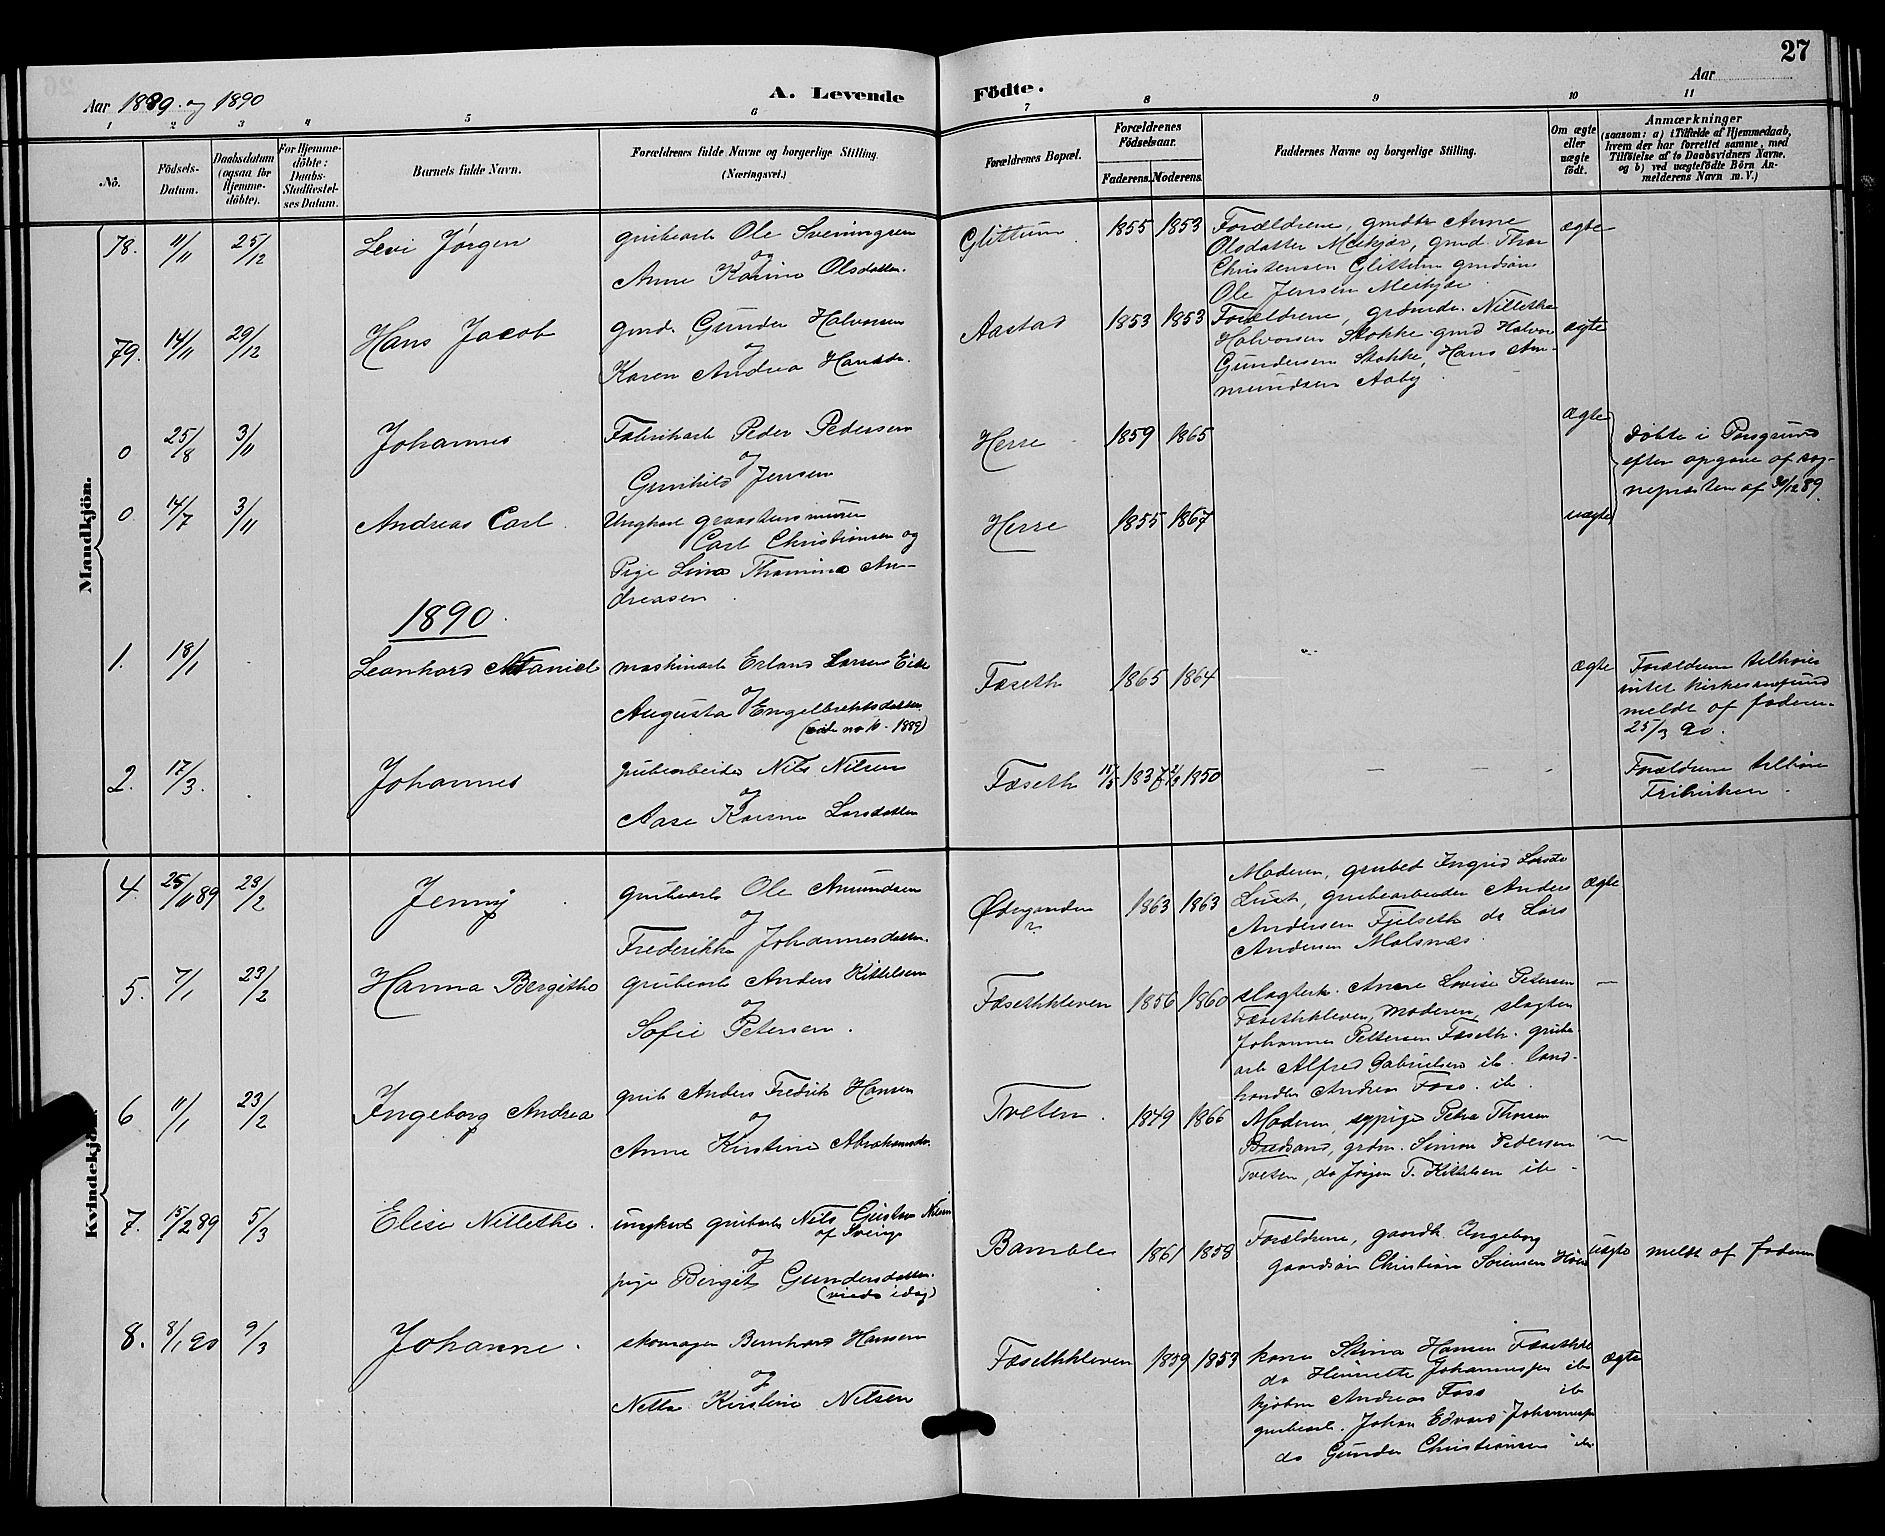 27
Aar 1889. og 1890
A. Levende Födte.
Aar
1 2 3 4 5 6 7 8 9 10 11
No.
Födsels-
Datum.
Daabsdatum
(ogsaa for
Hjemme-
döbte).
For Hjemme-
döbte:
Daabs-
Stadfæstel-
ses Datum.
Barnets fulde Navn.
Forældrenes fulde Navne og borgerlige Stilling.
(Næringsvei.)
Forældrenes Bopæl.
Forældrenes
Födselsaar.
Faderens. Moderens.
Faddernes Navne og borgerlige Stilling.
Om ægte
eller
uægte
födt.
Anmærkninger
(saasom: a) i Tilfælde af Hjemmedaab,
hvem der har forrettet samme, med
Tilföielse af to Daabsvidners Navne,
og b) ved uægtefödte Börn An-
melderens Navn m. V.)
Mandkjön.
78. 11/11 25/12 Levi Jørgen
grubearb Ole Sveningsen
og
Anne Karine Olsdatter.
Glittum 1855 1853
Forældrene, gmdtr Anne
Olsdatter Meekjær, gmd. Thor
Christensen Glittum gmdsøn
Ole Jensen Meekjær
ægte
79. 14/11 29/12 Hans Jacob
gmd. Gunder Halvorsen
og
Karen Andrea Hansdr.
Aastad 1853 1853
Forældrene, grdmdr. Nillethe
Halvorsen Stokke gmd Halvor
Gundersen Stokke, Hans Am-
mundsen Aaby.
ægte
0 25/8 3/11 Johannes
Fabrikarb Peder Pedersen
og
Gunhild Jensen
Herre 1859 1865
ægte
døbte i Porsgrund
efter opgave af sog-
nepræsten af 30/12 89.
0 14/7 3/11 Andreas Carl
Ungkarl graastensmurer
Carl Christiansen og
Pige Lina Thomine An-
dreasen.
Herre 1855 1867
uægte
1890.
1. 18/1 Leonhard Nataniel
maskinarb Erland Larsen Eike
og
Augusta Engelbrektsdatter
(vide no 10 - 1889)
Fæseth 1865 1864
ægte
Forældrene tilhører
intet kirkesamfund
meldt af faderen
25/3 90.
2. 17/3. Johannes
grubearbeider Nils Nilsen
og
Aase Karine Larsdatter
Fæseth 11/5 1837 1850
Forældrene tilhører
Frikirken.
Kvindekjön.
4. 25/11 89 23/2 Jenny
grubearb Ole Amundsen
og
Frederikke Johannesdatter.
Ødegaarden 1863 1863
Moderen, grubeb Ingrid Larsdr
Lust, grubearbeider Anders
Andersen Fjelseth do Lars
Andersen Molsnæs.
ægte
5. 7/1 23/2 Hanna Bergithe
grubearb Anders Kittelsen
og
Sofie Petersen.
Fæsethkleven 1856 1860
slagterk. Anne Lovise Petersen
Fæsethkleven, moderen, slagter
Johannes Pettersen Fæseth. grube-
arb Alfred Gabrielsen ib. land-
handler Andreas Foss. ib.
6 11/1 23/2 Ingeborg Andrea
grub Anders Fredrik Hansen
og
Anne Kirstine Abrahamsdr.
Tveten. 1849 1866
Moderen, sypige Petra Thorsen
Bredsand, grdm. Simon Pedersen
Tveten, do Jørgen T. Kittelsen ib.
7. 15/2 89 5/3 Elise Nillethe.
ungkarl grubearb Nils Gustav Nilsen
af Sverige
og
pige Birgit Gundersdatter.
(viede idag)
Bamble 1861 1858
Forældrene, gaardk. Ingeborg
gaardsøn Christian Sørensen Høen
uægte meldt af faderen
8. 8/1 90 9/3 Johanne.
skomager Bernhard Hansen
og
Netta Kirstine Nilsen
Fæsethkleven 1859 1853
kone Stina Hansen Fæsethkl
do Henriette Johannessen ib
kjøbm Andreas Foss ib
grubearb. Johan Edvard Johannessen
do Gunder Christiansen ib
ægte